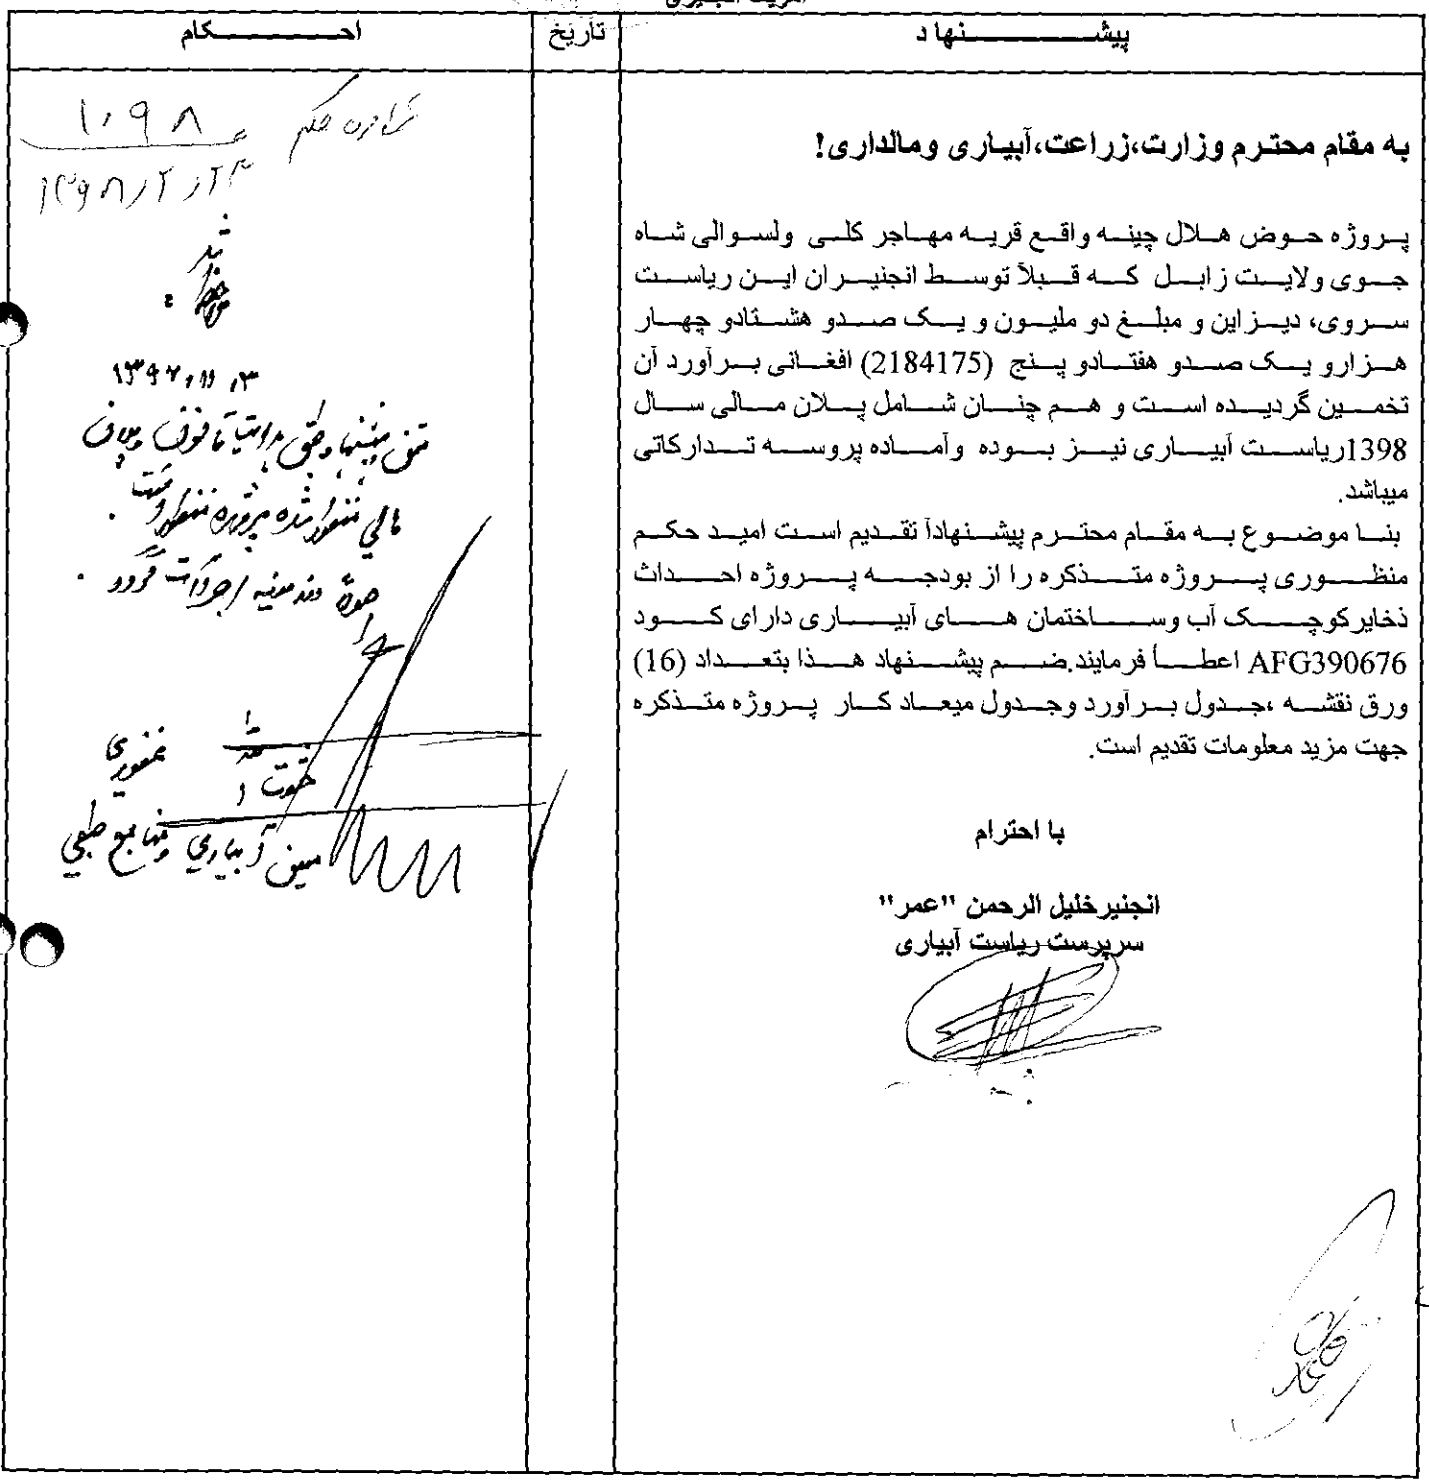 پیشنهاد
تاریخ
احکام
به مقام محترم وزارت،زراعت،آبیاری ومالداری!
پروژه حوض هلال چینه واقع قریه مهاجر کلی ولسوالی شاه
جوی ولایت زابل که قبلاً توسط انجنیران این ریاست
سروی، دیزاین و مبلغ دو ملیون و یک صدو هشتادو چهار
هزارو یک صدو هفتادو پنج (2184175) افغانی برآورد آن
تخمین گردیده است و هم چنان شامل پلان مالی سال
1398ریاست آبیاری نیز بوده وآماده پروسه تدارکاتی
میباشد.
بنا موضوع به مقام محترم پیشنهاداً تقدیم است امید حکم
منظوری پروژه متذکره را از بودجه پروژه احداث
ذخایرکوچک آب وساختمان های آبیاری دارای کود
AFG390676 اعطأ فرمایند.ضم پیشنهاد هذا بتعداد (16)
ورق نقشه ،جدول برآورد وجدول میعاد کار پروژه متذکره
جهت مزید معلومات تقدیم است.
با احترام
انجنیرخلیل الرحمن "عمر"
سرپرست ریاست آبیاری
حکم ۱۰۹۸
۱۳۹۸/۲/۲۴
مالی منظور شده پروژه منظور است.
اجراآت گردد.
غفوری
معین آبیاری ومنابع طبیعی